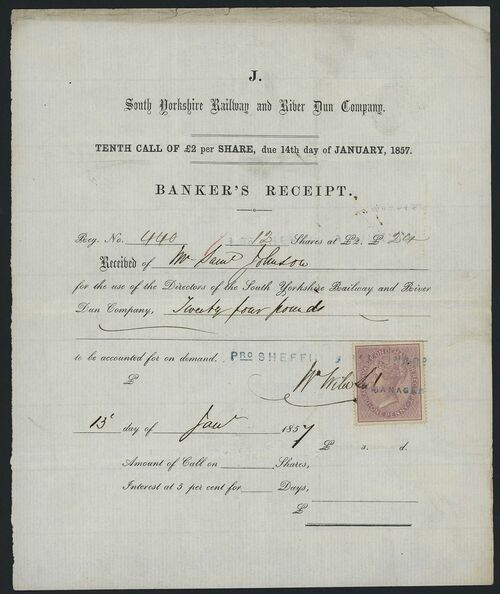 J.
South Yorkshire Railway and River Dun Company.
TENTH CALL OF £2 per SHARE, due 14th day of JANUARY, 1857.
BANKER'S RECEIPT.
Reg. No. 440 12 Shares at £2, £ 24
Received of Mr Saml Johnson
for the use of the Directors of the South Yorkshire Railway and River
Dun Company, Twenty four pounds
to be accounted for on demand. PRO SHEFFI
£
MANAGER
ONE PENNY
13 day of Jany 1857
£ s. d.
Amount of Call on Shares,
Interest at 5 per cent for Days,
£